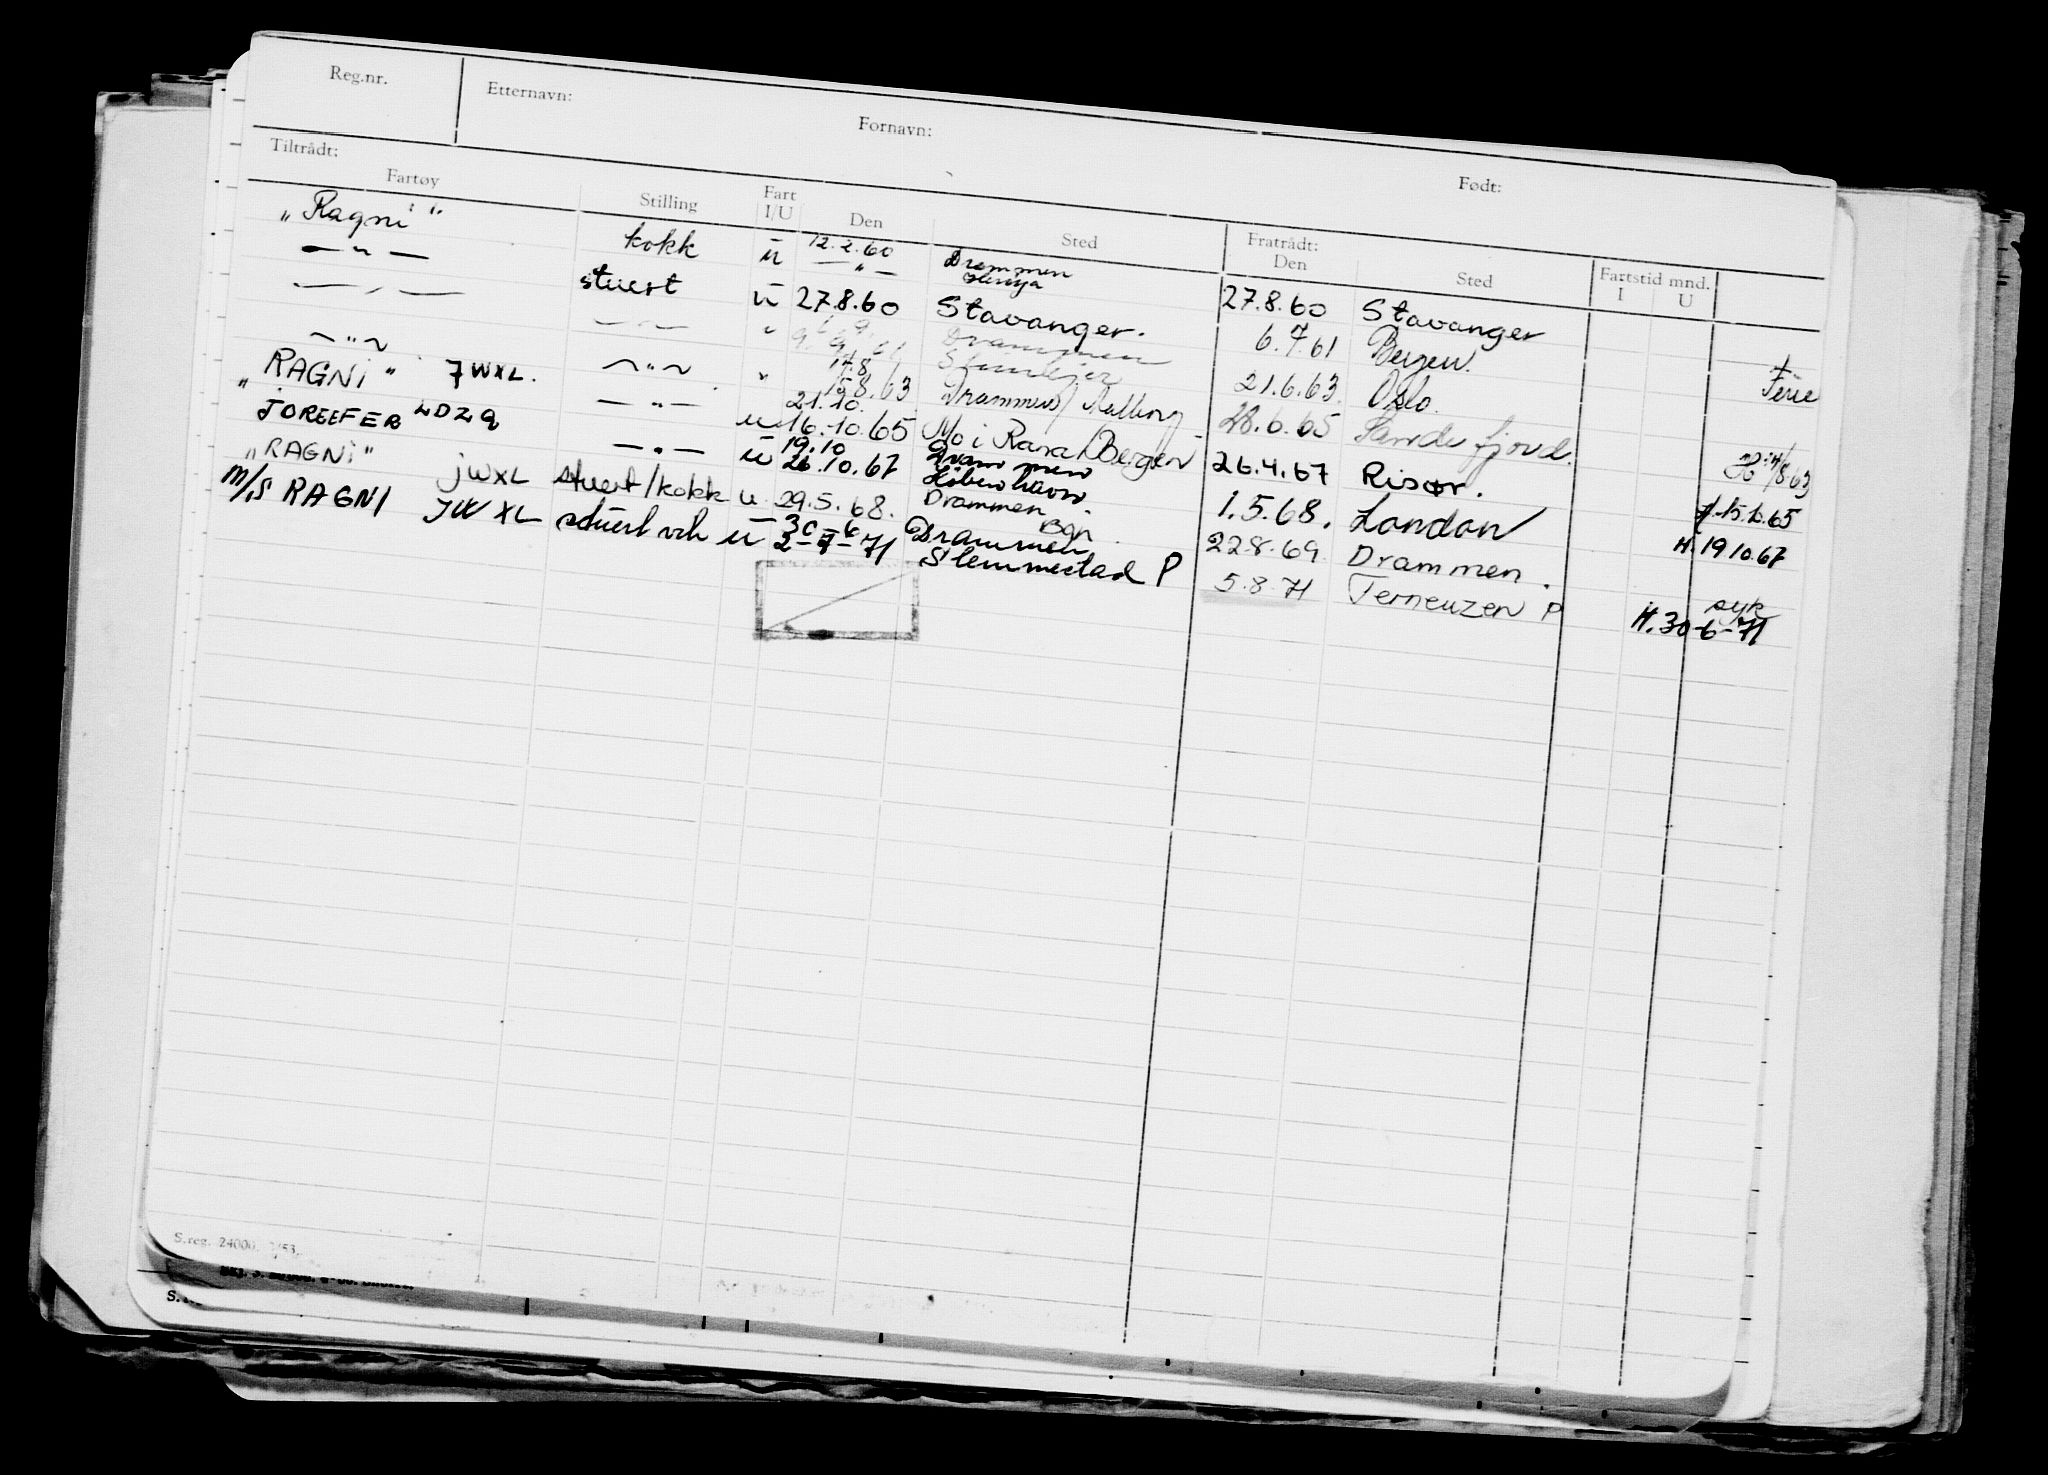 Reg.nr. Etternavn: Fornavn: Født:
Tiltrådt: Fratrådt:
Fartøy Stilling Fart I/U Den Sted Den Sted Fartstid mnd. I U
"Ragni" kokk u 12.2.60 Drammen 27.8.60 Stavanger
— " — stuert u 27.8.60 Stavanger. 6.7.61 Bergen. Ferie
— " — — " — " Drammen 21.6.63. Oslo.
~ " ~ ~ " ~ " 14.8 15.8.63 Drammen/Aalborg 28.6.65 Sandefjord.
"RAGNi" JWXL. — " — u 21.10. 16.10.65 Mo i Rana/Bergen 26.4.67 Risør. 15.10.65
LDZQ — " — u 19.10 26.10.67 Drammen København 1.5.68. London H. 19 10.67
"RAGNi" jWXL stuert/kokk u 29.5.68. Drammen. 22.8.69 Drammen.
M/S RAGNI JWXL stuert u 30-6 2-7-71 Drammen Slemmestad P 5.8.71 Terneuzen P syk H. 30-6-71
S.reg. 24000.